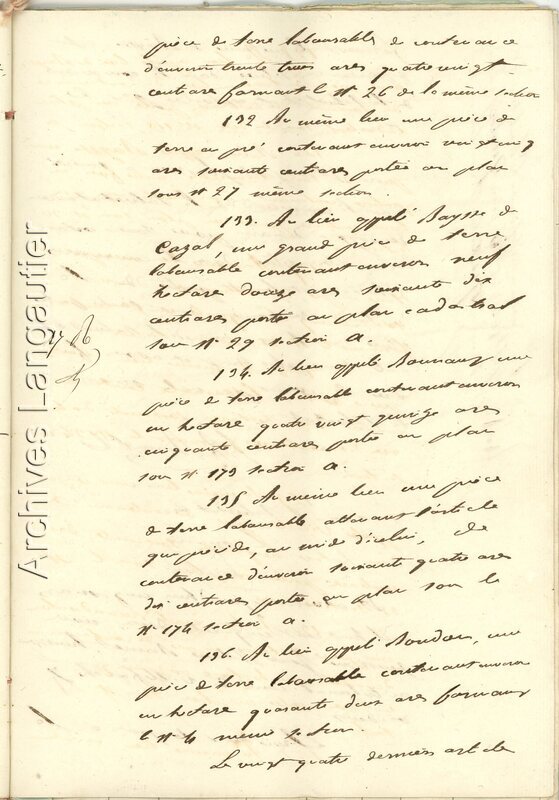 pièce de terre labourable de contenance
d'environ trente trois ares quatre vingt
centiare formant le N° 26 de la même section
132 Au même lieu une pièce de
terre au pré contenant environ vingt cinq
ares soixante centiares portée au plan
sous N° 27 même section.
133. Au lieu appelé Baysse de
Cazal, une grand pièce de terre
labourable contenant environ neuf
hectare douze ares soixante dix
centiares portée au plan cadastral
sous N° 29 section A.
134. Au lieu appelé une
pièce de terre labourable contenant environ
un hectare quatre vingt quinze ares
cinquante centiares portée au plan
sous N° 173 section A.
135 Au même lieu une pièce
de terre labourable attenant l'article
qui précède, au midi d'icelui, de
contenance d'environ soixante quatre ares
dix centiares portée au plan sous le
N° 174 section A.
136. Au lieu appelé une
pièce de terre labourable contenant environ
un hectare quarante deux ares formant
le N° 4 même section.
Le vingt quatre derniers article
Archives Langautier